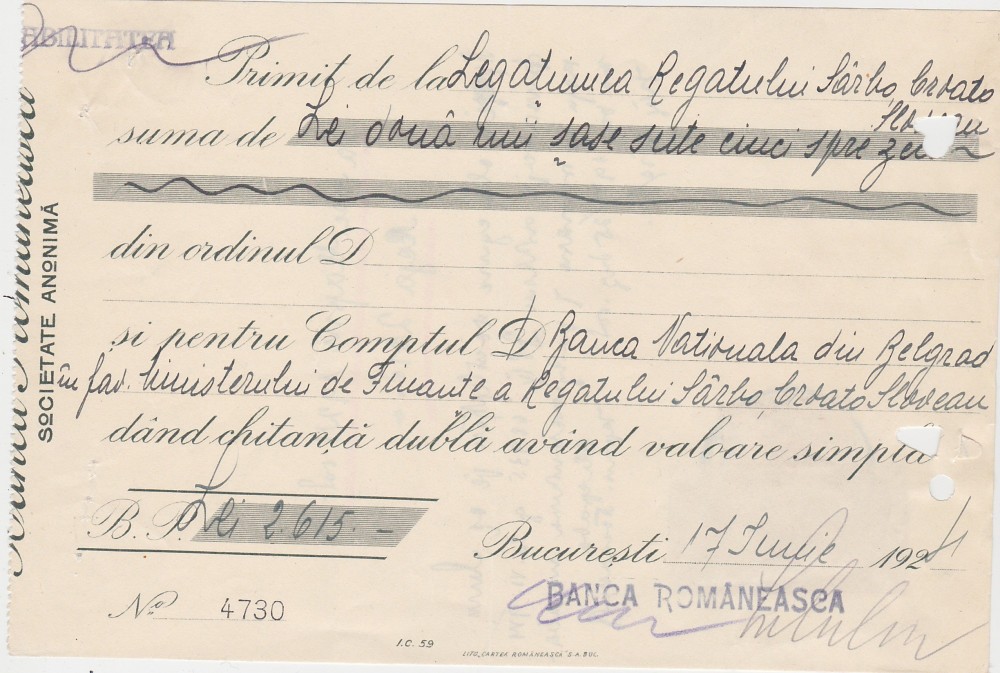 ABILITATEA
Primit de la Legatiunea Regatului Sârbo Croato
Sloven
suma de Lei două mii șase sute cinci spre
din ordinul D
și pentru Comptul D Banca Nationala din Belgrad
în fav. Ministerului de Finante a Regatului Sârbo, Croato Sloven
dând chitanță dublă având valoare simplă
B. P. Lei 2.615.-
București 17 Iunie 1924
No 4730
BANCA ROMÂNEASCA
I.C. 59
LIPO „CARTEA ROMÂNEASCĂ” S.A. BUC.
Banca Românească
SOCIETATE ANONIMĂ